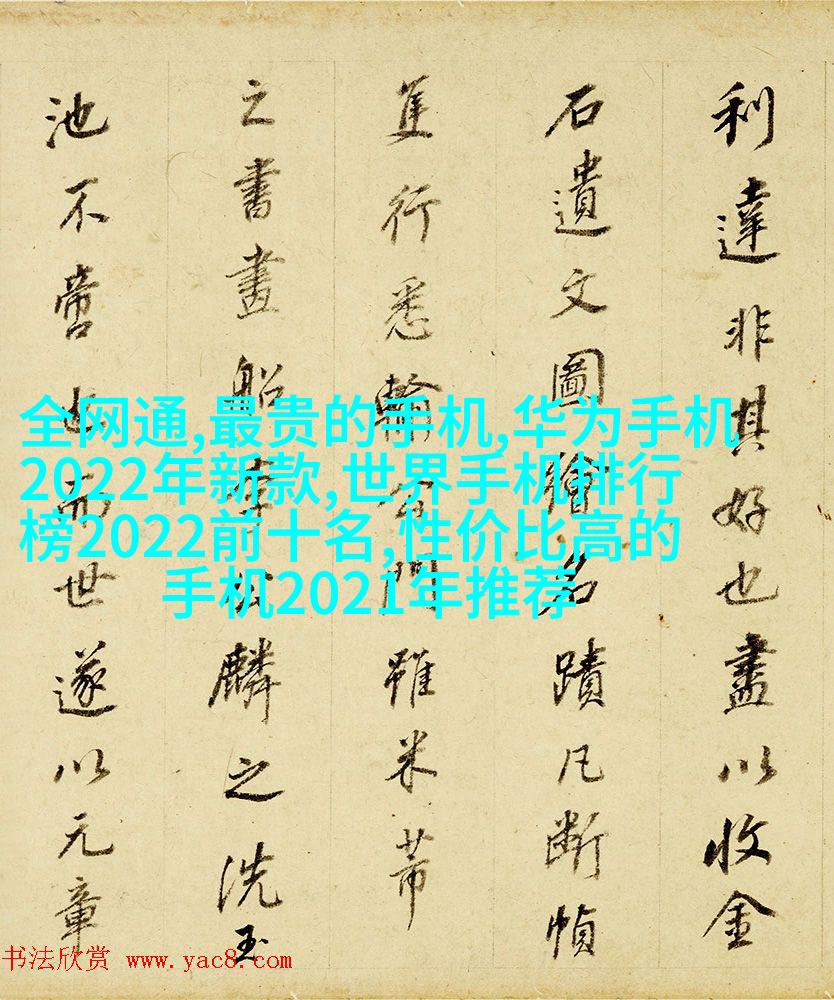 利達非其好也盡以收金
石遺文圖繪名蹟凡斷幀
隻行悉輸公門雖米芾
之書畫船李公麟之洗玉
池不啻也而世遂以元章
全网通,最贵的手机,华为手机
2022年新款,世界手机排行
榜2022前十名,性价比高的
手机2021年推荐
书法欣赏 www.yac8.com